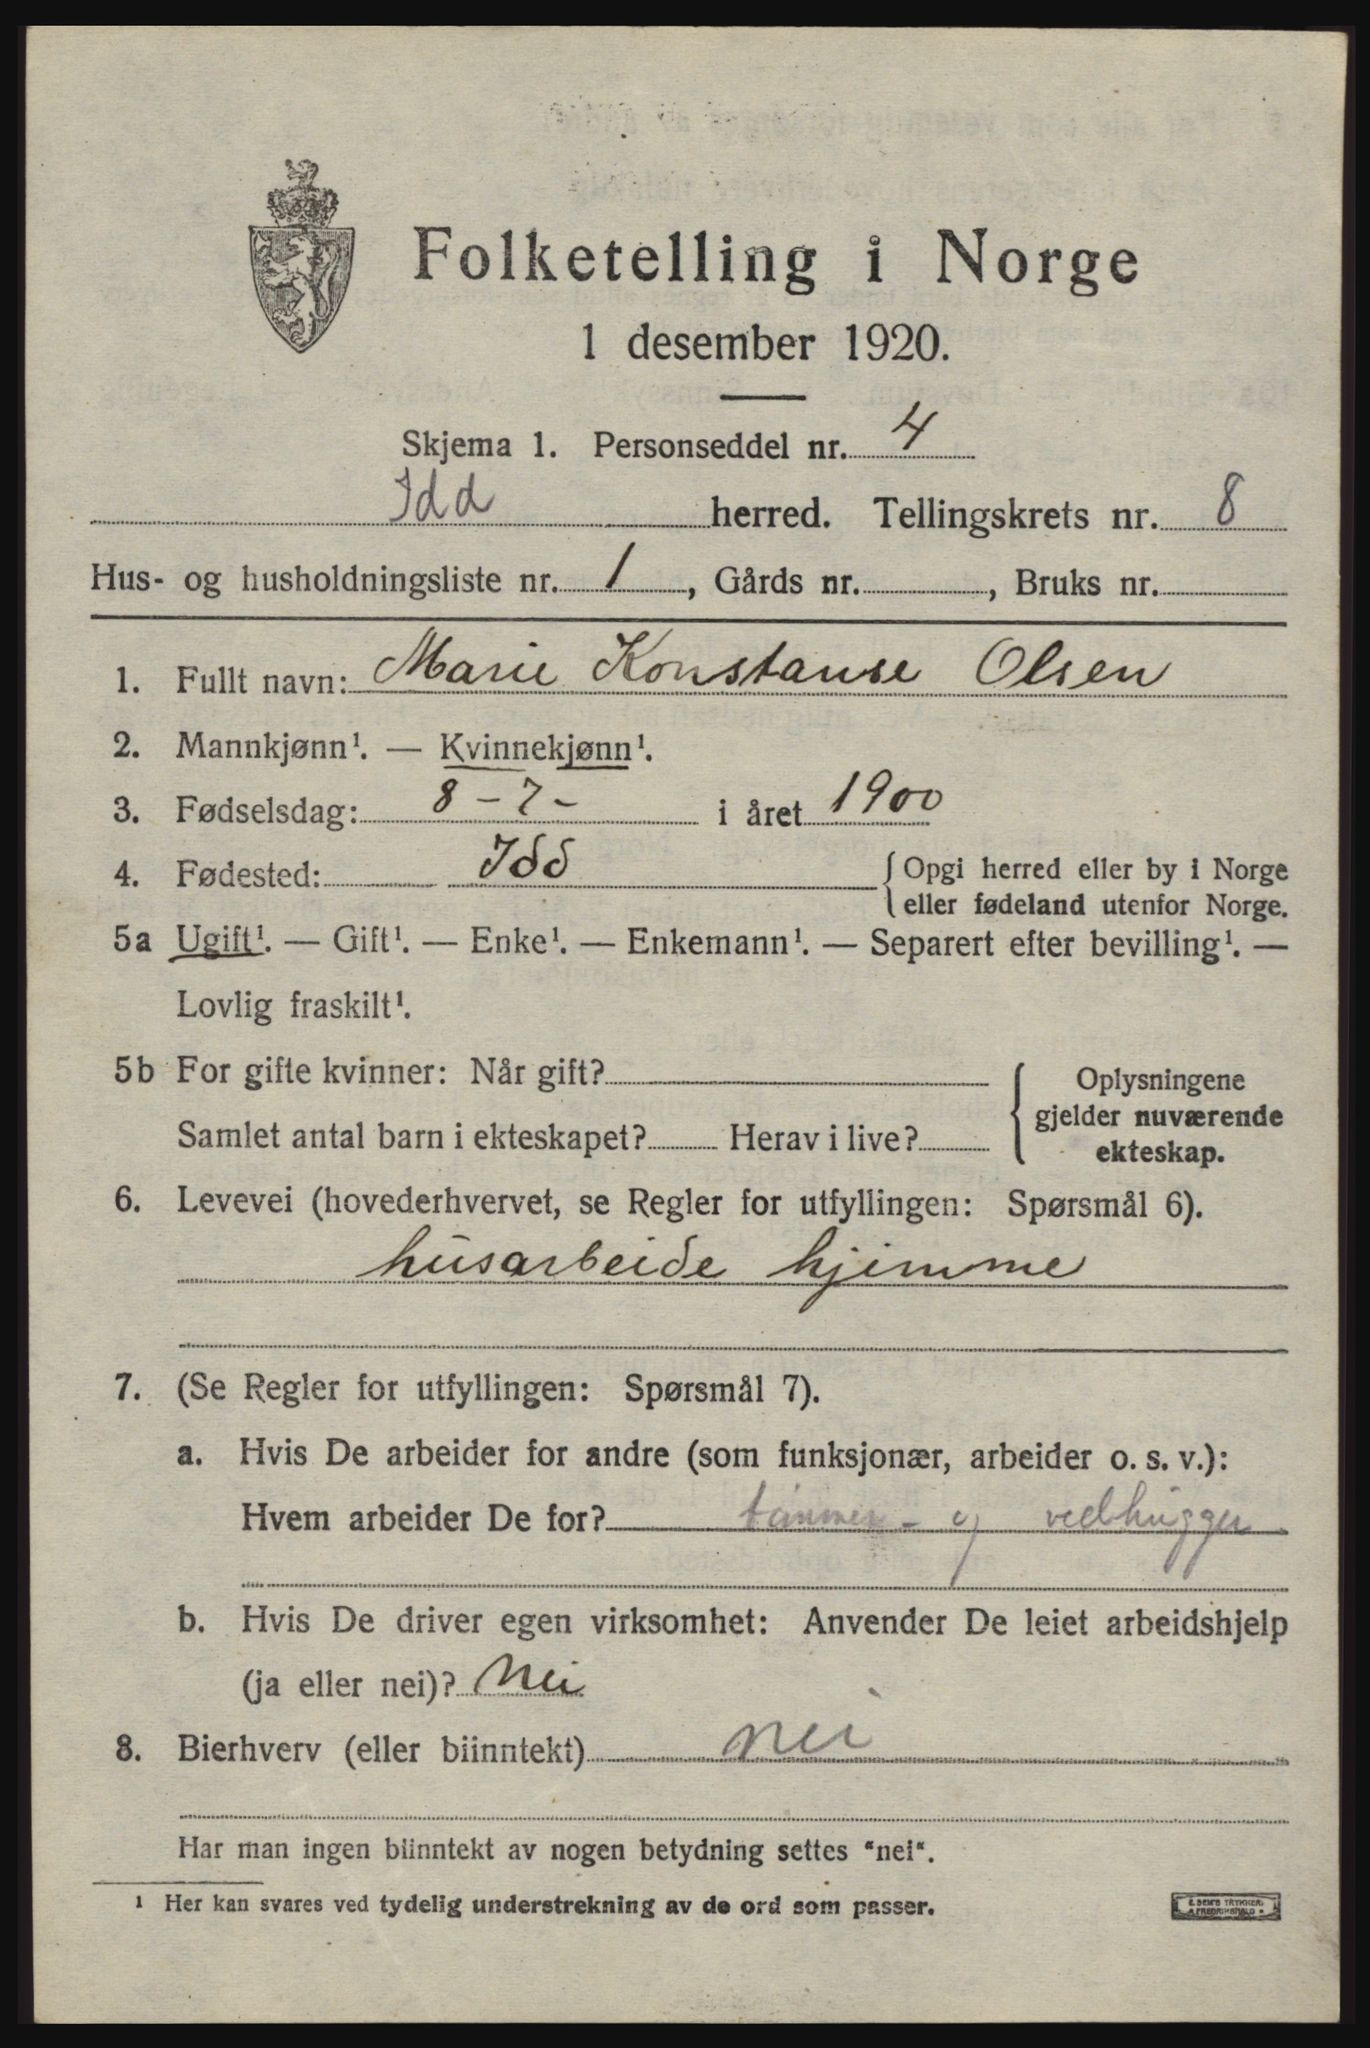 Folketelling i Norge
1 desember 1920.
Skjema 1. Personseddel nr. 4
Idd herred. Tellingskrets nr. 8
Hus- og husholdningsliste nr. 1, Gårds nr. , Bruks nr.
1. Fullt navn: Marie Konstanse Olsen
2. Mannkjønn¹. — Kvinnekjønn¹.
3. Fødselsdag: 8 - 7 - i året 1900
4. Fødested: Idd { Opgi herred eller by i Norge
eller fødeland utenfor Norge.
5a Ugift¹. — Gift¹. — Enke¹. — Enkemann¹. — Separert efter bevilling¹. —
Lovlig fraskilt¹.
5b For gifte kvinner: Når gift?
Samlet antal barn i ekteskapet? Herav i live?
{ Oplysningene
gjelder nuværende
ekteskap.
6. Levevei (hovederhvervet, se Regler for utfyllingen: Spørsmål 6).
husarbeide hjemme
7. (Se Regler for utfyllingen: Spørsmål 7).
a. Hvis De arbeider for andre (som funksjonær, arbeider o. s. v.):
Hvem arbeider De for? tømmer- og vedhugger
b. Hvis De driver egen virksomhet: Anvender De leiet arbeidshjelp
(ja eller nei)? Nei
8. Bierhverv (eller biinntekt) nei
Har man ingen biinntekt av nogen betydning settes "nei".
¹ Her kan svares ved tydelig understrekning av de ord som passer.